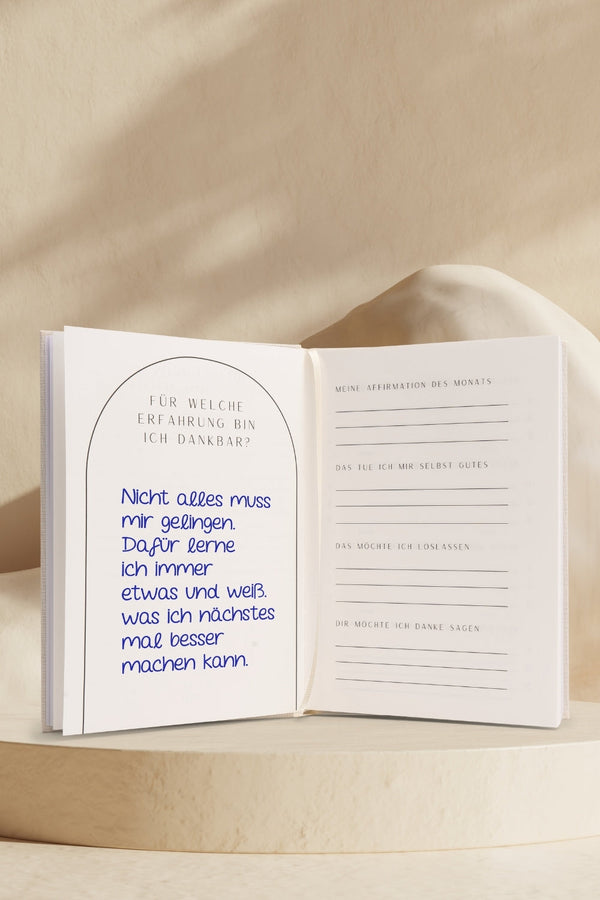 FÜR WELCHE
ERFAHRUNG BIN
ICH DANKBAR?
Nicht alles muss
mir gelingen.
Dafür lerne
ich immer
etwas und weiß.
was ich nächstes
mal besser
machen kann.
MEINE AFFIRMATION DES MONATS
DAS TUE ICH MIR SELBST GUTES
DAS MÖCHTE ICH LOSLASSEN
DIR MÖCHTE ICH DANKE SAGEN